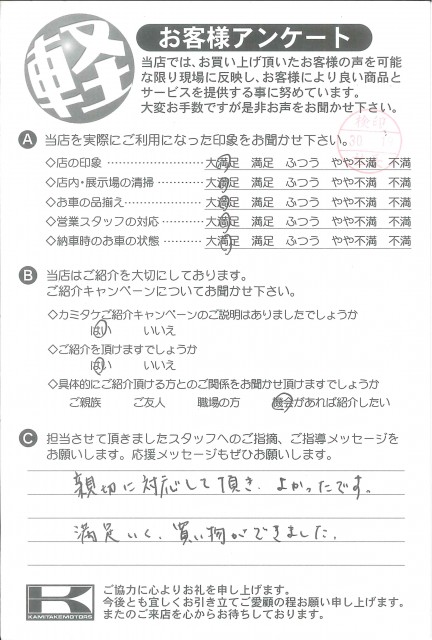 軽
お客様アンケート
当店では、お買い上げ頂いたお客様の声を可能
な限り現場に反映し、お客様により良い商品と
サービスを提供する事に努めています。
大変お手数ですが是非お声をお聞かせ下さい。
A 当店を実際にご利用になった印象をお聞かせ下さい。
◇店の印象 …………………… 大満足 満足 ふつう やや不満 不満
◇店内・展示場の清掃 ………… 大満足 満足 ふつう やや不満 不満
◇お車の品揃え ………………… 大満足 満足 ふつう やや不満 不満
◇営業スタッフの対応 ………… 大満足 満足 ふつう やや不満 不満
◇納車時のお車の状態 ………… 大満足 満足 ふつう やや不満 不満
B 当店はご紹介を大切にしております。
ご紹介キャンペーンについてお聞かせ下さい。
◇カミタケご紹介キャンペーンのご説明はありましたでしょうか
はい いいえ
◇ご紹介を頂けますでしょうか
はい いいえ
◇具体的にご紹介頂ける方とのご関係をお聞かせ頂けますでしょうか
ご親族 ご友人 職場の方 機会があれば紹介したい
C 担当させて頂きましたスタッフへのご指摘、ご指導メッセージを
お願いします。応援メッセージもぜひお願いします。
親切に対応して頂き、よかったです。
満足いく、買い物ができました。
K
KAMITAKEMOTORS
ご協力に心よりお礼を申し上げます。
今後とも宜しくお引き立てご愛顧の程お願い申し上げます。
またのご来店を心からお待ちしております。